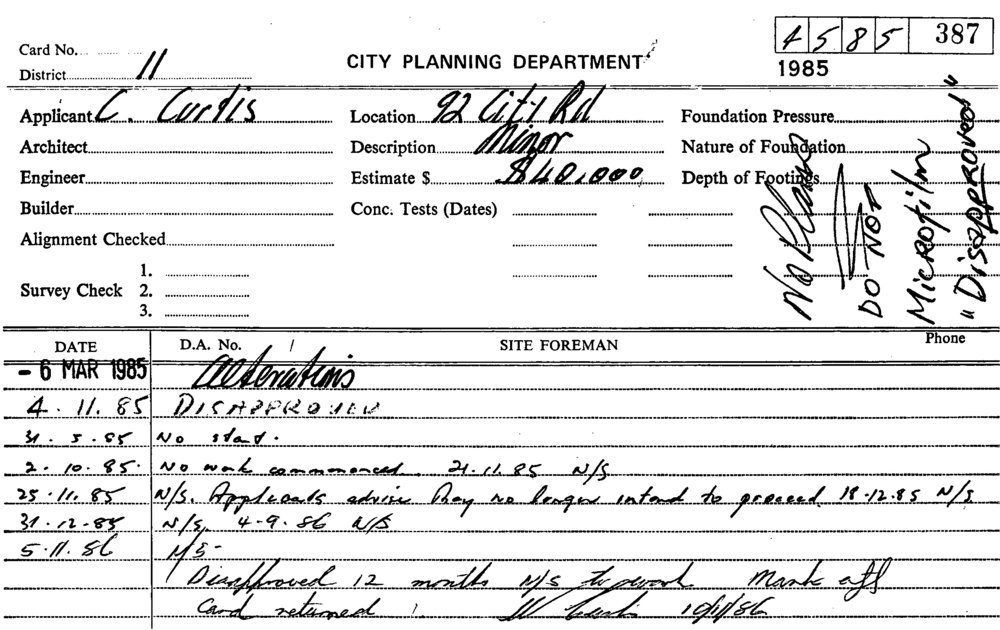 4 5 8 5 387
Card No.
District 11
CITY PLANNING DEPARTMENT
1985
Applicant C. Curtis
Location 92 City Rd
Foundation Pressure
Architect
Description Minor
Nature of Foundation
Engineer
Estimate $ $40,000
Depth of Footings
Builder
Conc. Tests (Dates)
Alignment Checked
Survey Check
1.
2.
3.
No Plans
DO NOT
Microfilm
"Disapproved"
DATE D.A. No. / SITE FOREMAN Phone
- 6 MAR 1985 Alterations
4. 11. 85 DISAPPROVED
31. 5. 85 No start.
2. 10. 85. No work commenced. 21.11.85 N/S
25.11.85 N/S. Applicants advise they no longer intend to proceed 18-12.85 N/S
31.12.85 N/S. 4-9.86 N/S
5.11.86 N/S-
Disapproved 12 months N/S to work Mark off
Card returned 10/11/86